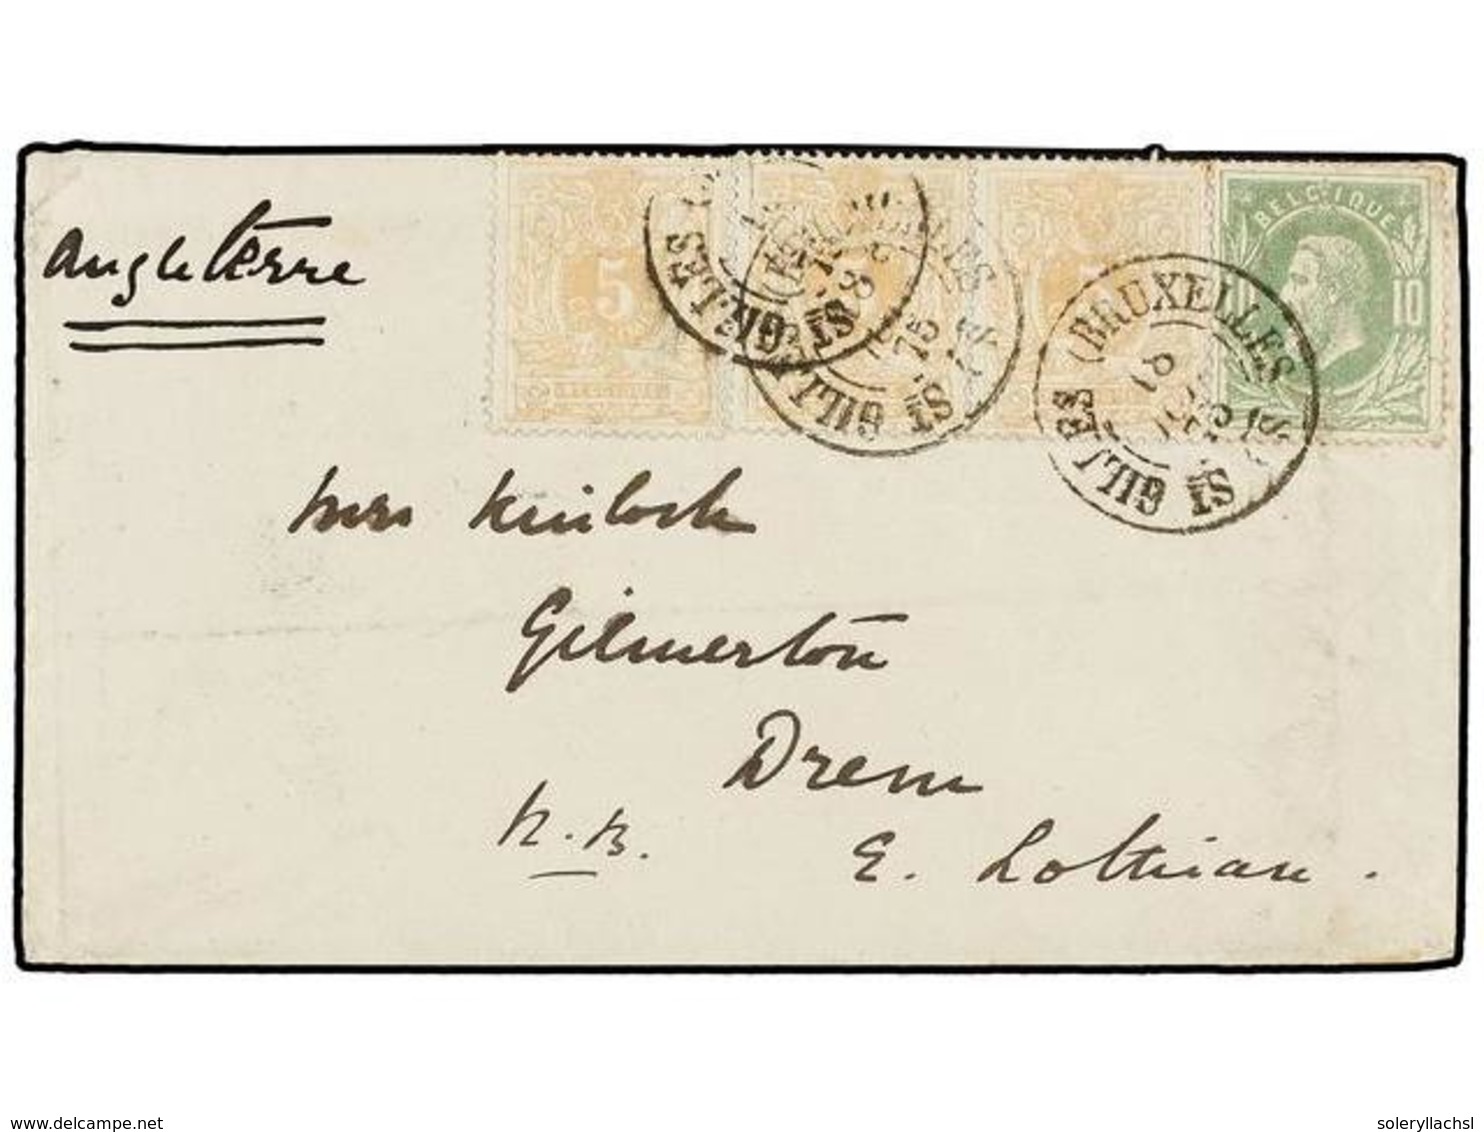 Angleterre
5
BELGIQUE
10
10
ST GILLES (BRUXELLES)
75
ST GILLES (BRUXELLES)
Mrs Kinloch
Gilmerton
Drem
N.B.
E. Lothian.
delcampe.net
soleryllachsl